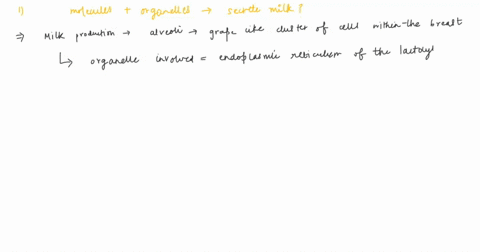 1) molecules + organelles → secrete milk?
⇒ Milk production → alveoli → grape like cluster of cells within the breast
↳ organelle involved = endoplasmic reticulum of the